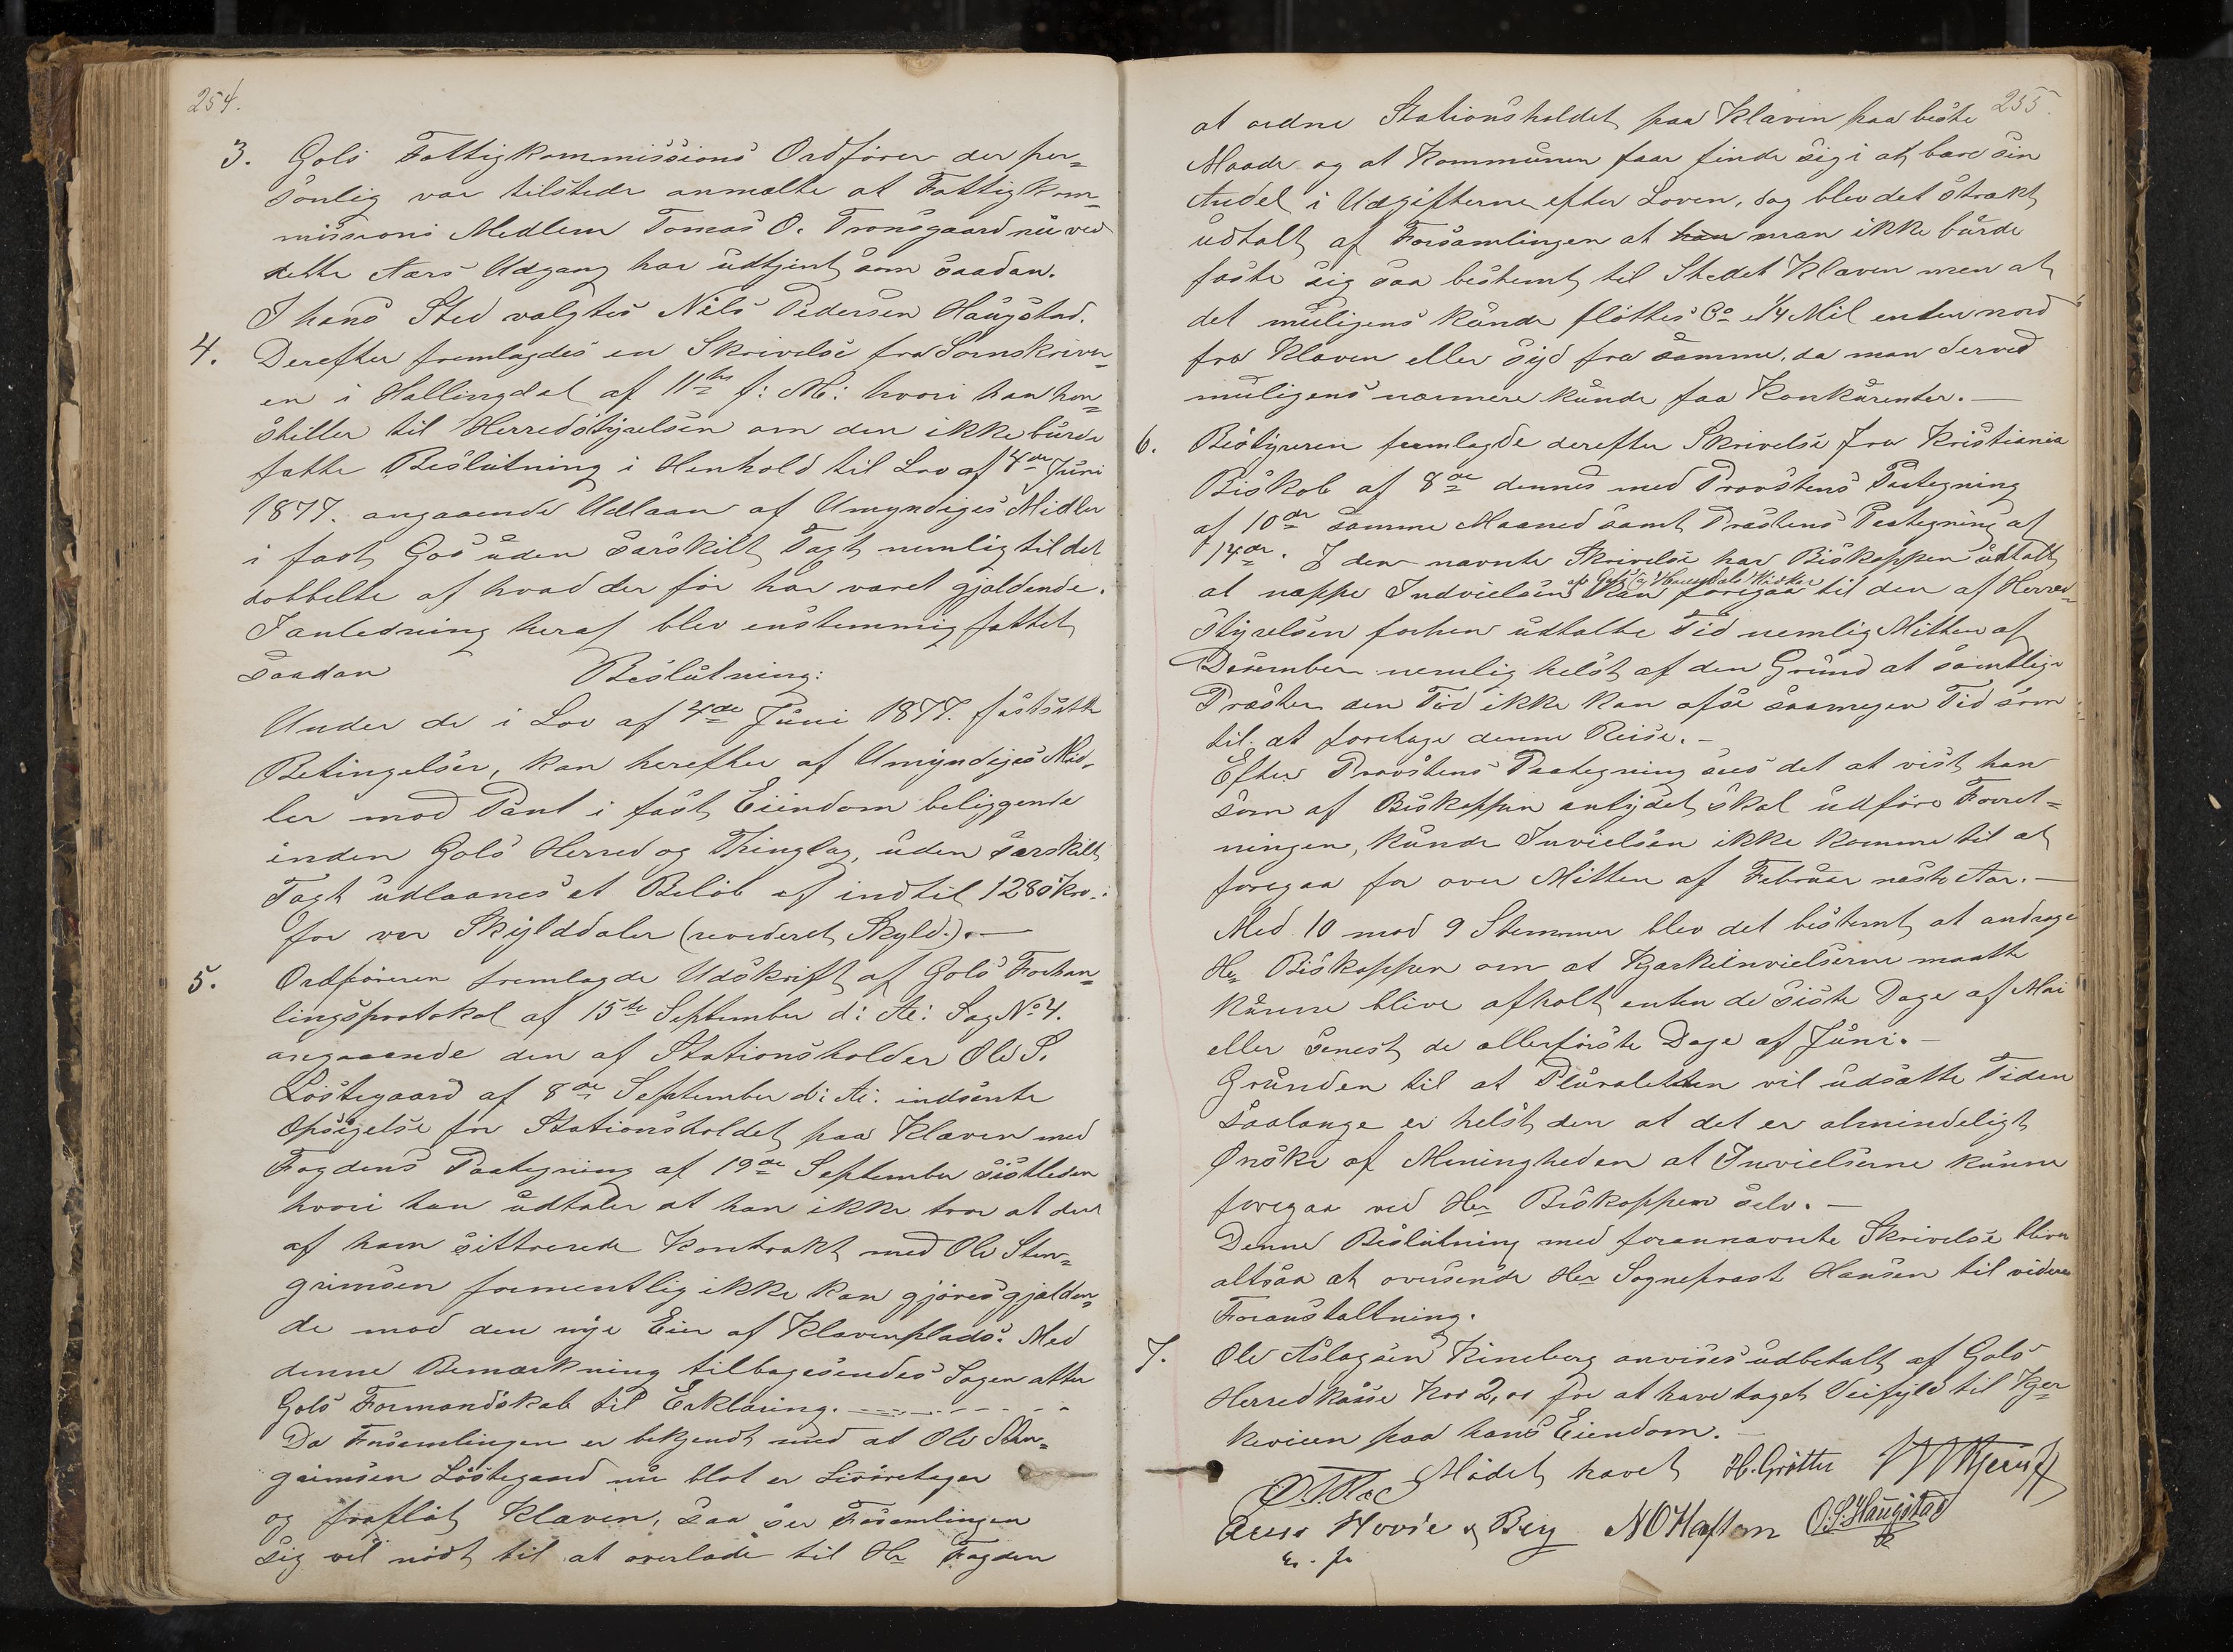 254.
3. Gols Fattigkommissions Ordfører der per=
sonlig var tilstede anmælte at Fattigkom=
missions Medlem Tomas O. Tronsgaard nu ved
dette Aars Udgang har udtjent som saadan.
I hans Sted valgtes Nils Pedersen Haugstad.
4. Derefter fremlagdes en Skrivelse fra Sornskriver=
en i Hallingdal af 11te f: M: hvori han hen=
stiller til Herredstyrelsen om den ikke burde
fatte Beslutning i Henhold til Lov af 4de Juni
1877. angaaende Udlaan af Umyndiges Midler
i fast Gos uden særskilt Tagt nemlig til det
dobbelte af hvad der før har været gjældende.
I anledning heraf blev enstemmig fattet
saadan Beslutning:
Under de i Lov af 4de Juni 1877. fastsatte
Betingelser, kan herefter af Umyndiges Mid=
ler mod Pant i fast Eiendom beliggende
inden Gols Herred og Thinglag, uden særskilt
Tagt udlaanes et Beløb af indtil 1280 Kr.
for vær Skylddaler (revederet Skyld.). —
5. Ordføreren fremlagde Udskrift af Gols Forhan=
lingsprotokol af 15de September d: A: Sag No 4.
angaaende den af Stationsholder Ole S.
Løstegaard af 8de September d: A: indsente
Opsigelse for Stationsholdet paa Klaven med
Fogdens Paategning af 19de September sistleden
hvori han udtaler at han ikke tror at der
af ham sittrerede Kontrakt med Ole Sten=
grimsen formentlig ikke kan gjøres gjælden=
de mod den nye Eier af Klavenplads. Med
denne Bemærkning tilbagesendes Sagen atter
Gols Formandskab til Erklæring.
Da Forsamlingen er bekjendt med at Ole Sten=
grimsen Løstegaard nu blot er Livøretager
og frafløt Klaven, saa ser Forsamlingen
sig vel nødt til at overlade til Hr Fogden
255.
at ordne Stationsholdet paa Klaven paa beste
Maade og at Kommunen faar finde sig i at bære sin
Andel i Udgifterne efter Loven, dog blev det strakt
udtalt af Forsamlingen at han man ikke burde
fæste sig saa bestemt til Stedet Klaven men at
det muligens kunde fløttes Co 1/4 Mil enten nord
fra Klaven eller syd fra samme, da man derved
muligens nærmere kunde faa Konkurenter. —
6. Bestyreren fremlagde derefter Skrivelse fra Kristiania
Biskob af 8de dennes med Provstens Paategning
af 10de samme Maaned samt Præstens Paategning af
14de. I den nævnte Skrivelse har Biskoppen udtalt
at neppe Indvielsen af Gols og Hemsedals Kirker kan foregaa til den af Herred=
styrelsen forhen udtalte Tid nemlig Mitten af
Desember nemlig helst af den Grund at samtlige
Præster den Tid ikke kan afse saamegen Tid som
til at foretage denne Reise. —
Efter Provstens Paategning sees det at vist han
som af Biskoppen antydet skal udføre Forret=
ningen, kunde Invielsen ikke komme til at
foregaa før over Mitten af Februar næste Aar. —
Med 10 mod 9 Stemmer blev det bestemt at andrage
Hr Biskoppen om at Kjørkeinvielserne maatte
kunne blive afholt enten de siste Dage af Mai
eller senest de allerførste Dage af Juni. —
Grunden til at Pluraletten vil udsætte Tiden
saalange er helst den at det er almindeligt
Ønske af Meningheden at Invielserne kunne
foregaa ved Hr Biskoppen selv. —
Denne Beslutning med forannævnte Skrivelse bliver
altsaa at oversende Hr Sogneprest Hansen til videre
Foranstaltning.
7. Ole Aslagsen Kineberg anvises udbetalt af Gols
Herredkasse Kr 2, for at have taget Veifyld til Kjer=
keveien paa hans Eiendom. —
Mødet hævet H. Grøtte
O. S. Haugstad